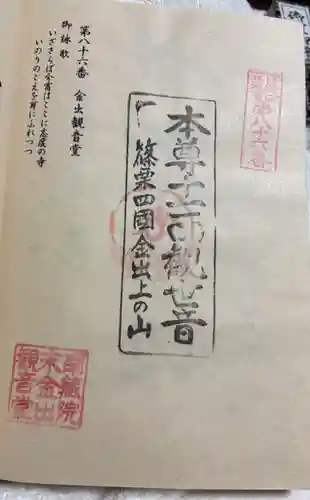 第八十六番
本尊十一面觀世音
篠栗四國金出上の山
第八十六番 金出観音堂
御詠歌
いざさらば今宵はここに志度の寺
いのりのこえを耳にふれつつ
蔵院
末金出
観音堂